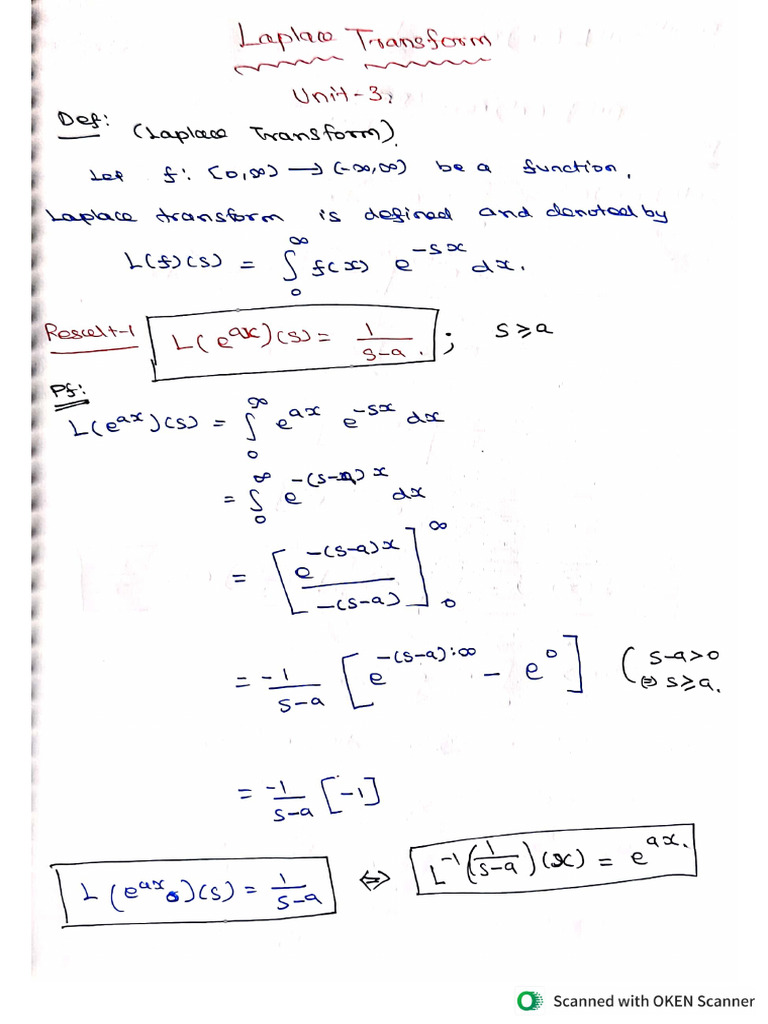 Laplace Transform
Unit-3.
Def: (Laplace Transform).
Let f: [0,∞) → (-∞,∞) be a function,
Laplace transform is defined and denoted by
L(f)(s) = ∫₀^∞ f(x) e^{-sx} dx.
Result-1 L(e^{ax})(s) = 1/(s-a). ; s≥a
Pf:
L(e^{ax})(s) = ∫₀^∞ e^{ax} e^{-sx} dx
= ∫₀^∞ e^{-(s-a)x} dx
= [e^{-(s-a)x}/-(s-a)]₀^∞
= -1/(s-a) [e^{-(s-a)·∞} - e^0] (s-a>0
⇔ s≥a.
= -1/(s-a) [-1]
L(e^{ax})(s) = 1/(s-a) ⇔ L^{-1}(1/(s-a))(x) = e^{ax}.
Scanned with OKEN Scanner